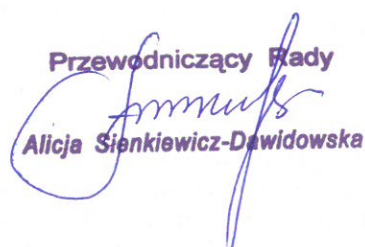 Przewodniczący Rady
Alicja Sienkiewicz-Dawidowska